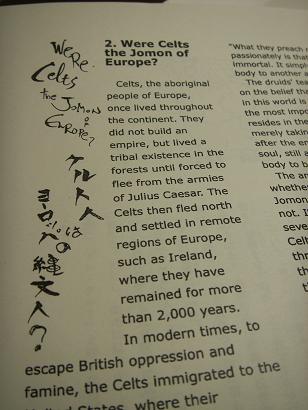 Were
Celts
the Jomon
of
Europe?
ケルト人は
ヨーロッパの
縄文人？
2. Were Celts
the Jomon of
Europe?
Celts, the aboriginal
people of Europe,
once lived throughout
the continent. They
did not build an
empire, but lived a
tribal existence in the
forests until forced to
flee from the armies
of Julius Caesar. The
Celts then fled north
and settled in remote
regions of Europe,
such as Ireland,
where they have
remained for more
than 2,000 years.
In modern times, to
escape British oppression and
famine, the Celts immigrated to the
United States, where their
"What they preach
passionately is tha
immortal. It simpl
body to another a
The druids' tea
on the belief tha
in this world is
the most impo
resides in the
merely takin
after the en
soul, still a
body to b
The ar
whethe
Jomon
not. I
seve
Cel
thr
th